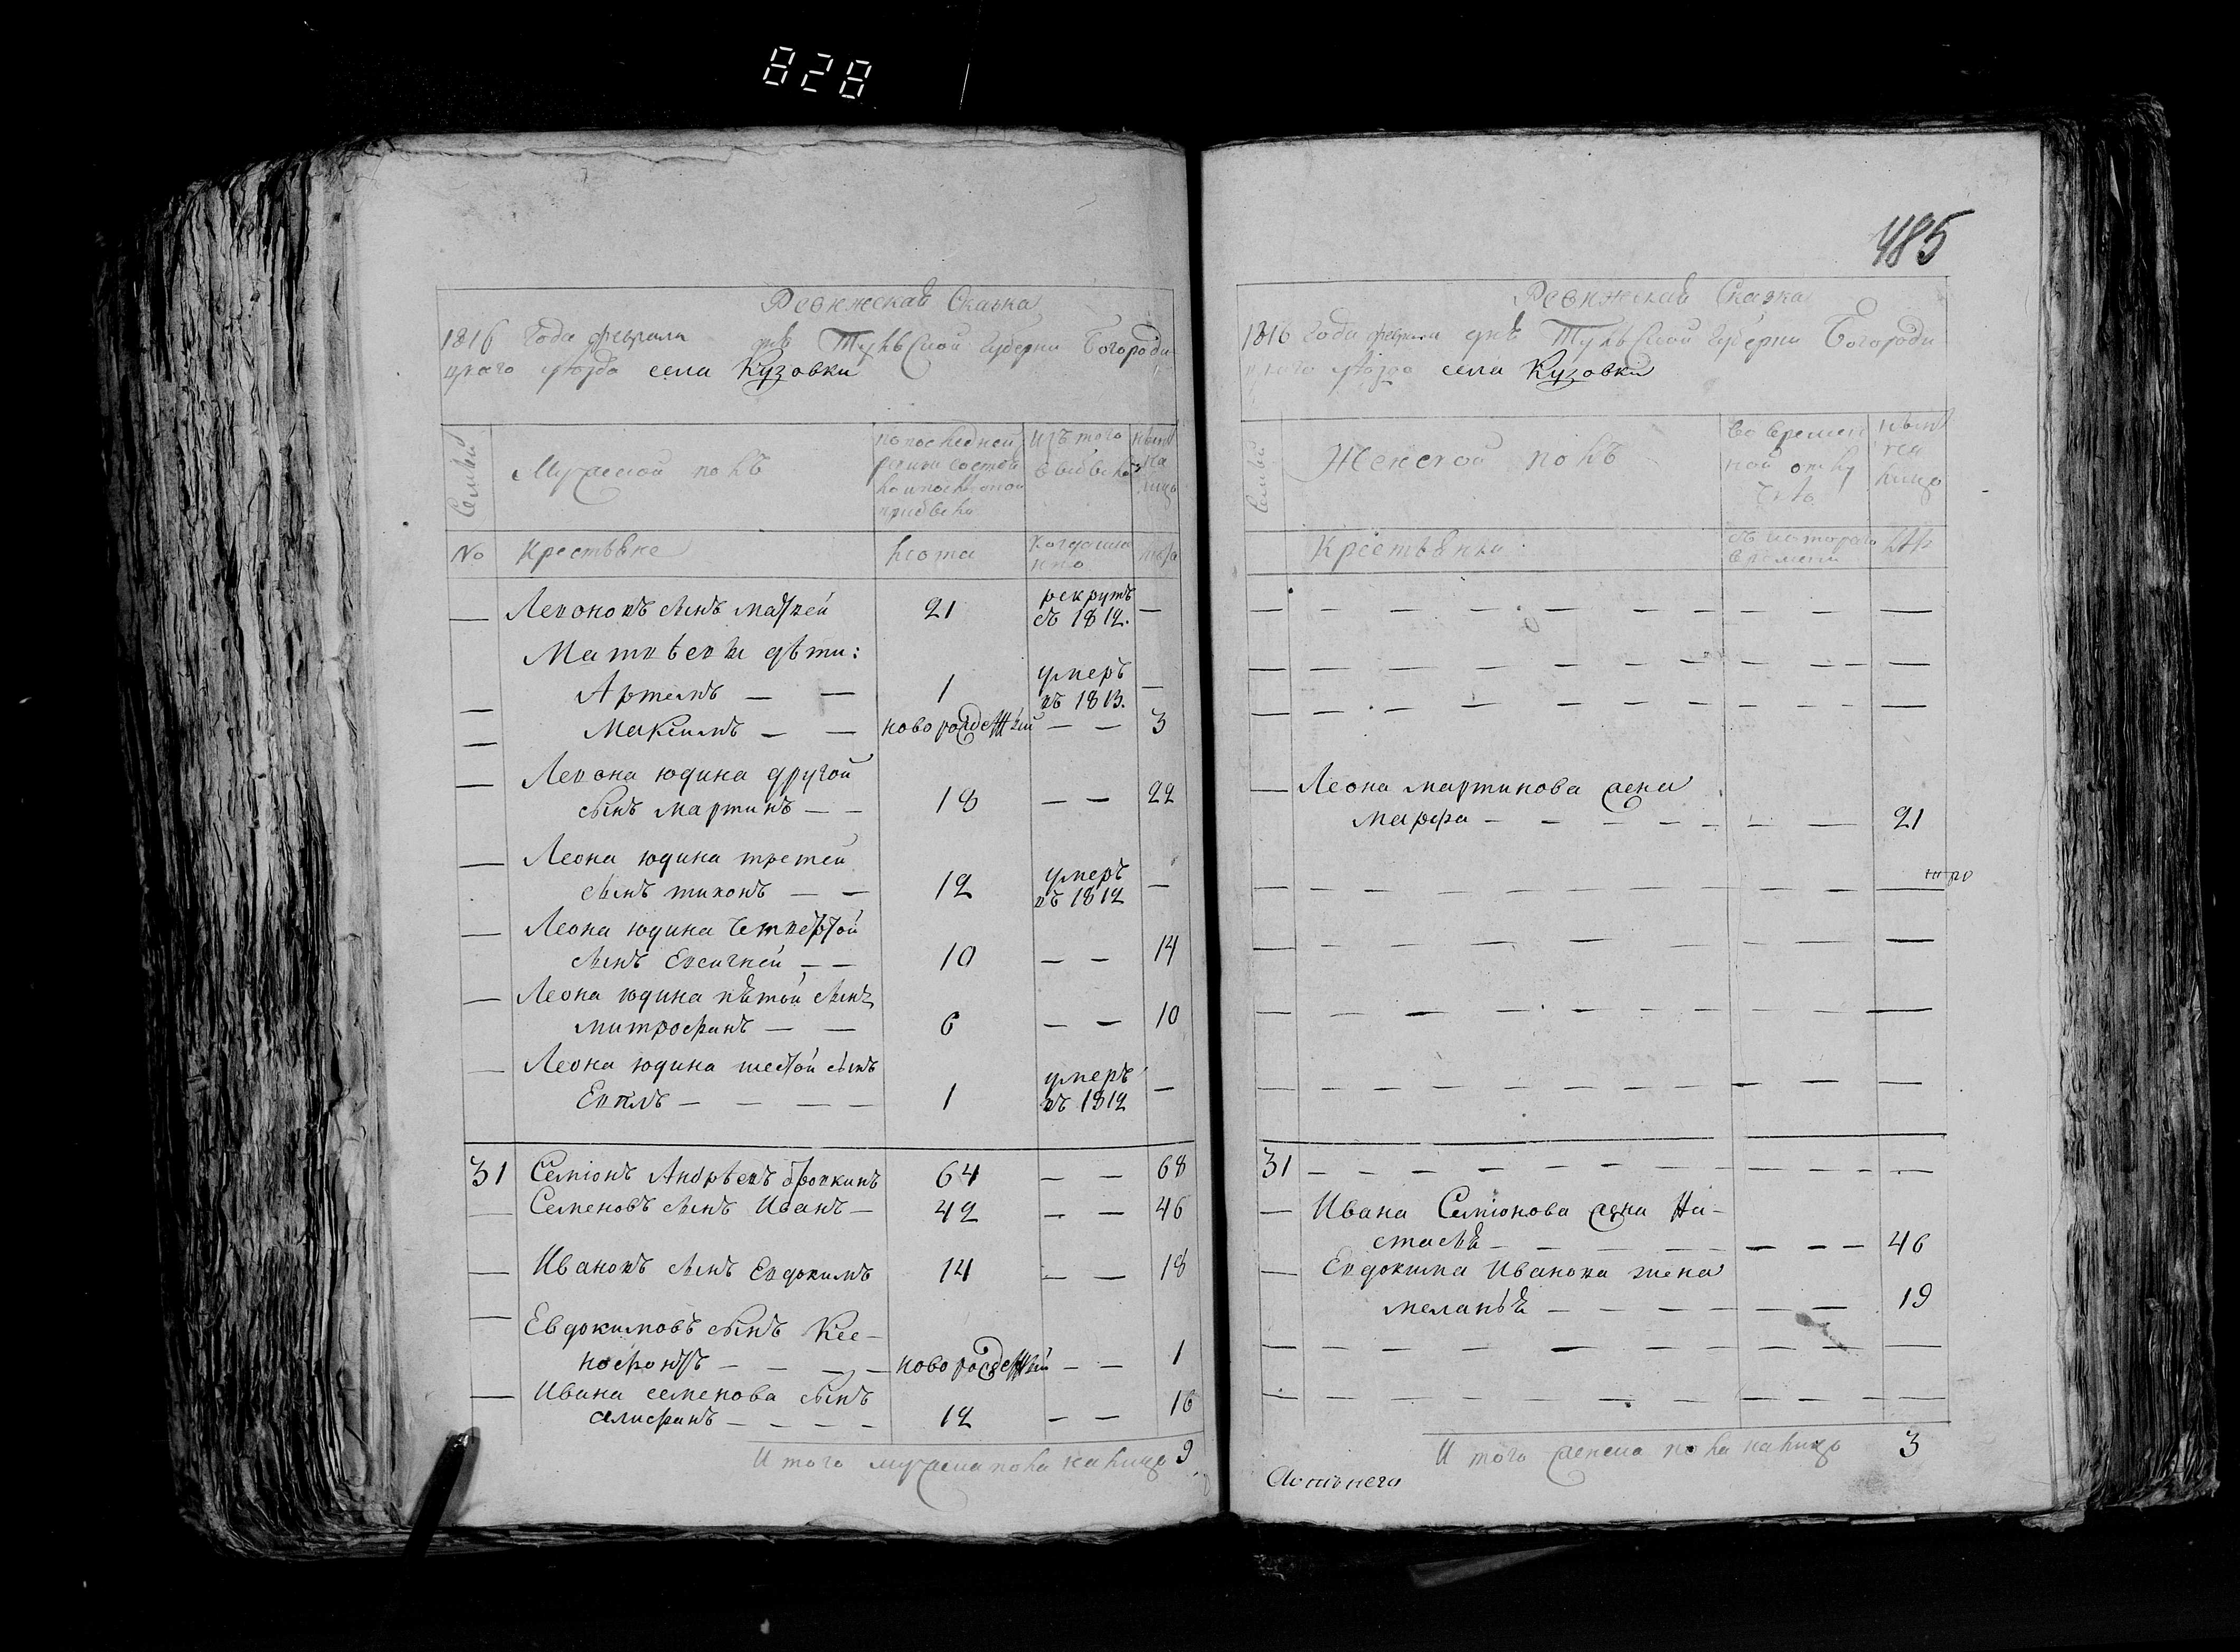 828
Ревижская Сказка
1816 года февраля дня Тульской Губерни Богороди
цкаго уѣзда села Кузовки
Семьи
Мужеской полъ
по последней
ревизи состоя
ло и после оной
прибыло
Изъ того
выбыло
нынѣ
на
лицо
№ Крестьяне
лѣта
когда имянно
лѣта
— Леоновъ сынъ матвей 21 рекрутъ съ 1812. —
Матвѣевы дѣти:
— Артемъ — — 1 умеръ въ 1813. —
— Максимъ — — новорожденный — — 3
— Леона юдина другой
сынъ мартинъ — — 18 — — 22
— Леона юдина третей
сынъ тихонъ — — 12 умеръ въ 1812 —
— Леона юдина четвертой
сынъ Евсигней — — 10 — — 14
— Леона юдина пятой сынъ
митрофанъ — — 6 — — 10
— Леона юдина шестой сынъ
Евплъ — — — — 1 умеръ въ 1812 —
31 Семіонъ Андрѣевъ бровкинъ 64 — — 68
— Семеновъ сынъ Иванъ — 42 — — 46
— Ивановъ сынъ Евдокимъ 14 — — 18
— Евдокимовъ сынъ Ксе-
нофонтъ — — — — новорожденный — — 1
— Ивана семенова сынъ
селифанъ — — — — 12 — — 16
Итого мужеска пола налицо 9
485
Ревижская Сказка
1816 года февраля дня Тульской Губерни Богороди
цкаго уѣзда села Кузовки
Семьи
Женской полъ
Во времен
ной отлу
чкѣ
нынѣ
на
лицо
Крестьянки
съ котораго
времени
лѣта
— Леона мартинова жена
марфа — — — — — — — 21
31 — — — — — — — — — — — —
— Ивана Семіонова жена На-
стасья — — — — — — — — 46
— Евдокима Иванова жена
меланья — — — — — — 19
Итого женска пола налицо 3